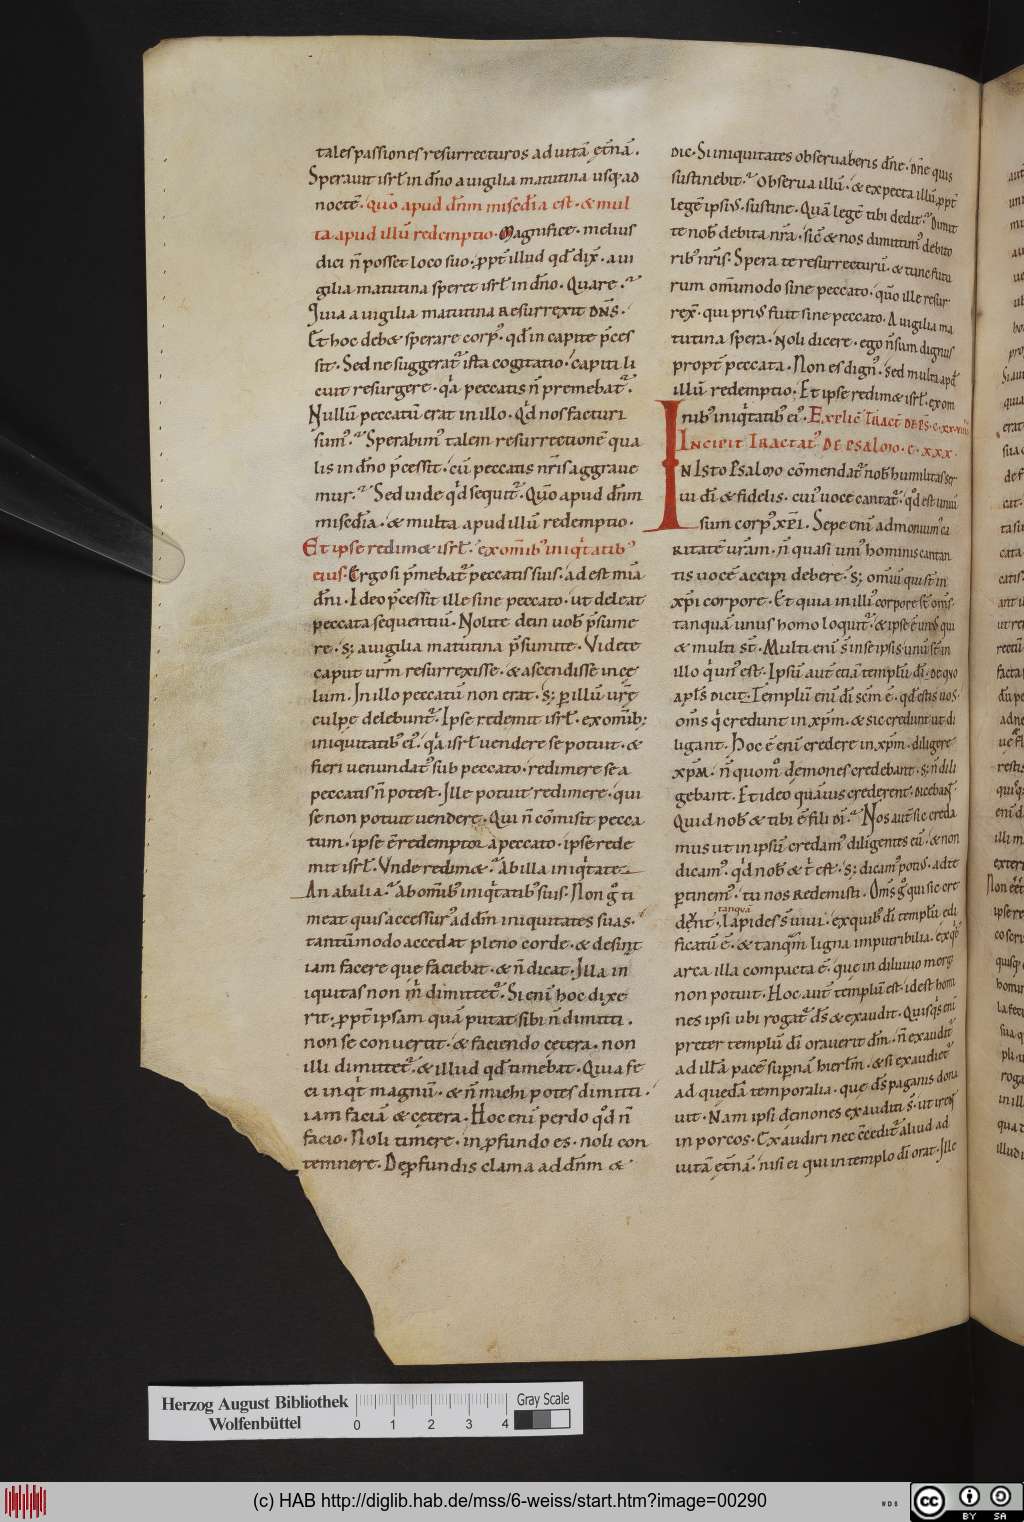 tales passiones resurrecturos ad uitā et̄nā.
Sperauit isrl̄ in dn̄o a uigilia matutina usq; ad
noctē. quō apud dn̄m mis̄edia est. & mul
ta apud illū redemptio. Magnifice. melius
dici n̄ posset loco suo. ꝓpt̄ illud qd̄ dix̄. a ui
gilia matutina speret isrl̄ in dn̄o. Quare.
Quia a uigilia matutina resurrexit dn̄s.
Et hoc deb& sperare corp̄. qd̄ in capite p̄ces
sit. Sed ne suggerat᷑ ista cogitatio. capiti li
cuit resurgere. qa peccatis n̄ premebat᷑.
Nullū peccatū erat in illo. Qd̄ nos facturi
sum᷒. Sperabim᷒ talem resurrectionē qua
lis in dn̄o p̄cessit. cū peccatis nr̄is aggraue
mur. Sed uide qd̄ sequit᷑. Quō apud dn̄m
mis̄edia. & multa apud illū redemptio.
Et ipse redim& isrl̄. ex om̄ib᷒ iniqtatib᷒
eius. Ergo si p̄mebat᷑ peccatis suis. adest mīa
dn̄i. Ideo p̄cessit ille sine peccato. ut deleat
peccata sequentiū. Nolite de in uob̄ p̄sume
re. s; a uigilia matutina p̄sumite. Videte
caput ur̄m resurrexisse. & ascendisse in ce
lum. In illo peccatū non erat. s; ꝑ illū ur̄e
culpe delebunt᷑. Ipse redemit isrl̄. ex om̄ib;
iniquitatib᷒ ei᷒. qa isrl̄ uendere se potuit. &
fieri uenundat᷒ sub peccato. redimere se a
peccatis n̄ potest. Ille potuit redimere. qui
se non potuit uendere. Qui n̄ cōmisit pecca
tum. ipse ē redemptor a peccato. ipse rede
mit isrl̄. Vnde redim&. Ab illa iniqtate
An ab alia. Ab om̄ib᷒ iniqtatib᷒ suis. Non g̊ ti
meat quis accessur᷒ ad dn̄m iniquitates suas.
tantūmodo accedat pleno corde. & desinat
iam facere que faciebat. & n̄ dicat. Illa in
iquitas non m̄ dimittet᷑. Si eni hoc dixe
rit. ꝓpt̄ ipsam quā putat sibi n̄ dimitti.
non se conuertit. & faciendo cetera. non
illi dimittet᷑. & illud qd̄ timebat. Quia fe
ci inqt magnū. & n̄ michi potest dimitti.
iam faciā & cetera. Hoc eni perdo qd̄ n̄
facio. Noli timere. in ꝓfundo es. noli con
temnere. De ꝓfundis clama ad dn̄m &
dic. Si iniquitates obseruaberis dn̄e. dn̄e quis
sustinebit. Obserua illū. & expecta illū. ꝓpt̄
legē ipsi᷒. sustine. Quā legē tibi dedit. Dimit
te nob̄ debita nr̄a. sic̄ & nos dimittim᷒ debito
rib᷒ nr̄is. Spera te resurrecturū. & tunc futu
rum om̄imodo sine peccato. quō ille resur
rex̄. qui pri᷒ fuit sine peccato. A uigilia ma
tutina spera. Noli dicere. ego n̄ sum dignus
propt̄ peccata. Non es dign᷒. sed multa apd̄
illū redemptio. Et ipse redim& isrl̄. ex om
nib᷒ iniqtatib᷒ ei᷒. Explic̄ tract̄ de ps̄. c. xx. viiii.
Incipit tractat᷒ de psalmo. c. xxx.
In isto psalmo cōmendat᷑ nob̄ humilitas ser
ui dī & fidelis. cui᷒ uoce cantat᷑. qd̄ est uniu
sum corp᷒ xp̄i. Sepe eni admonuim᷒ ca
ritatē ur̄am. n̄ quasi uni᷒ hominis cantan
tis uocē accipi debere. s; omīu qui st̄ in
xp̄i corpore. Et quia in illi᷒ corpore st̄ om̄s.
tanquā unus homo loquit᷑. & ipse ē unus qui
& multi st̄. Multi eni s̄ in se ipsis. unū st̄ in
illo q un᷒ est. Ipsū aut̄ etiā templū dī. de quo
apl̄s dicit. Templū eni dī scm̄ ē. qd̄ estis uos.
om̄s q credunt in xp̄m. & sic credunt ut di
ligant. Hoc ē eni credere in xp̄m. diligere
xp̄m. n̄ quom᷒ demones credebant. s; n̄ dili
gebant. Et ideo quāuis crederent. dicebant.
Quid nob̄ & tibi ē fili dī. Nos aut̄ sic creda
mus ut in ipsū credam᷒ diligentes eū. & non
dicam᷒. qd̄ nob̄ & t ē. s; dicam᷒ poti᷒. ad te
ꝑtinem᷒. tu nos redemisti. Om̄s g̊ qui sic cre
dunt. tanquā lapides s̄ uiui. ex quib᷒ dī templū edi
ficatū ē. & tanqm̄ ligna imputribilia. ex qb᷒
arca illa compacta ē. que in diluuio mergi
non potuit. Hoc aut̄ templū est. id est homi
nes ipsi ubi rogat᷑ ds̄ & exaudit. Quisqs eni
preter templū dī orauerit dm̄. n̄ exaudit᷑
ad illā pacē supnā hierlm̄. & si exaudiet᷑
ad quedā temporalia. que ds̄ paganis dona
uit. Nam ipsi demones exauditi s̄. ut irent
in porcos. Exaudiri nec cēedit᷑ aliud ad
uitā et̄nā. nisi ei qui in templo dī orat. Ille
Herzog August Bibliothek
Wolfenbüttel
0 1 2 3 4
Gray Scale
(c) HAB http://diglib.hab.de/mss/6-weiss/start.htm?image=00290
cc BY SA